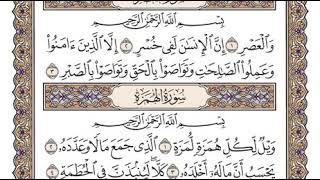 بِسْمِ ٱللَّهِ ٱلرَّحْمَٰنِ ٱلرَّحِيمِ
وَٱلْعَصْرِ ۝١ إِنَّ ٱلْإِنسَٰنَ لَفِى خُسْرٍ ۝٢ إِلَّا ٱلَّذِينَ ءَامَنُوا۟
وَعَمِلُوا۟ ٱلصَّٰلِحَٰتِ وَتَوَاصَوْا۟ بِٱلْحَقِّ وَتَوَاصَوْا۟ بِٱلصَّبْرِ ۝٣
سُورَةُ الهُمَزَةِ
بِسْمِ ٱللَّهِ ٱلرَّحْمَٰنِ ٱلرَّحِيمِ
وَيْلٌ لِّكُلِّ هُمَزَةٍ لُّمَزَةٍ ۝١ ٱلَّذِى جَمَعَ مَالًا وَعَدَّدَهُۥ ۝٢
يَحْسَبُ أَنَّ مَالَهُۥٓ أَخْلَدَهُۥ ۝٣ كَلَّا ۖ لَيُنۢبَذَنَّ فِى ٱلْحُطَمَةِ ۝٤